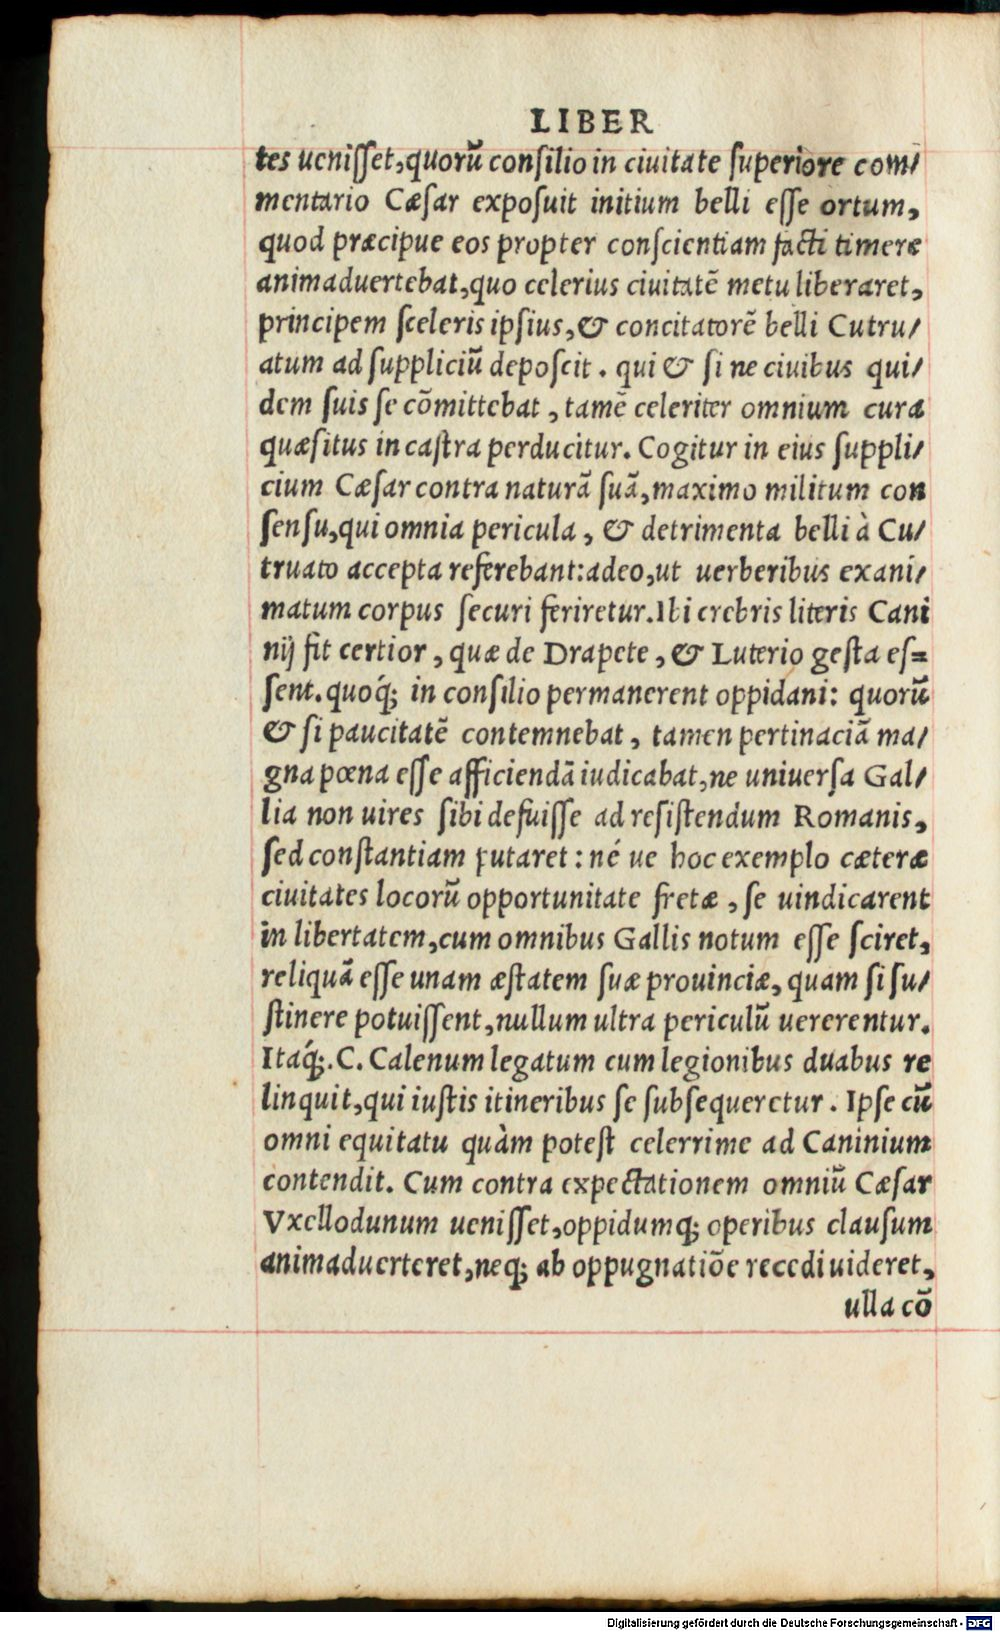 LIBER
tes uenisset,quorũ consilio in ciuitate superiore com/
mentario Cæsar exposuit initium belli esse ortum,
quod præcipue eos propter conscientiam facti timere
animaduertebat,quo celerius ciuitatẽ metu liberaret,
principem sceleris ipsius,& concitatorẽ belli Cutru/
atum ad suppliciũ deposcit. qui & si ne ciuibus qui/
dem suis se cõmittebat, tamẽ celeriter omnium cura
quæsitus in castra perducitur. Cogitur in eius suppli/
cium Cæsar contra naturã suã,maximo militum con
sensu,qui omnia pericula, & detrimenta belli à Cu/
truato accepta referebant:adeo,ut uerberibus exani/
matum corpus securi feriretur.Ibi crebris literis Cani
nij fit certior, quæ de Drapete, & Luterio gesta es=
sent.quoq́; in consilio permanerent oppidani: quorũ
& si paucitatẽ contemnebat, tamen pertinaciã ma/
gna pœna esse afficiendã iudicabat,ne uniuersa Gal/
lia non uires sibi defuisse ad resistendum Romanis,
sed constantiam putaret: né ue hoc exemplo cæteræ
ciuitates locorũ opportunitate fretæ, se uindicarent
in libertatem,cum omnibus Gallis notum esse sciret,
reliquã esse unam æstatem suæ prouinciæ, quam si su/
stinere potuissent,nullum ultra periculũ uererentur.
Itaq́;.C. Calenum legatum cum legionibus duabus re
linquit,qui iustis itineribus se subsequeretur. Ipse cũ
omni equitatu quàm potest celerrime ad Caninium
contendit. Cum contra expectationem omniũ Cæsar
Vxellodunum uenisset,oppidumq; operibus clausum
animaduerteret,neq; ab oppugnatiõe recedi uideret,
ulla cõ
Digitalisierung gefördert durch die Deutsche Forschungsgemeinschaft - DFG